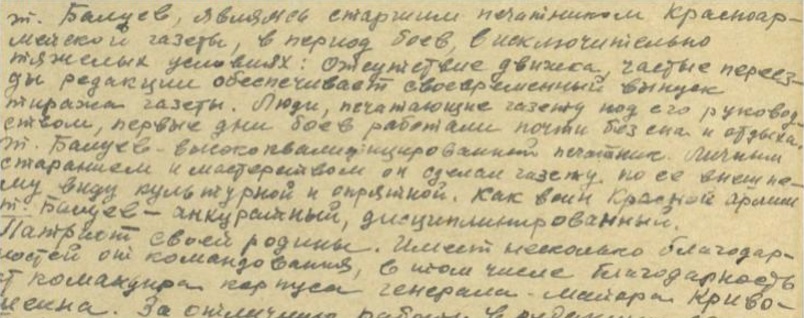 т. Балуев, являясь старшим печатником Красноар-
мейской газеты, в период боев, в исключительно
тяжелых условиях: Отсутствие движка, частые переез-
ды редакции обеспечивает своевременный выпуск
тиража газеты. Люди, печатающие газету под его руковод-
ством, первые дни боев работали почти без сна и отдыха.
т. Балуев - высококвалифицированный печатник. Личным
старанием и мастерством он сделал газету по ее внешне-
му виду культурной и опрятной. Как воин Красной Армии
т. Балуев - аккуратный, дисциплинированный.
Патриот своей родины. Имеет несколько благодар-
ностей от командования, в том числе благодарность
от командира корпуса генерала-майора Криво-
шеина. За отличную работу в